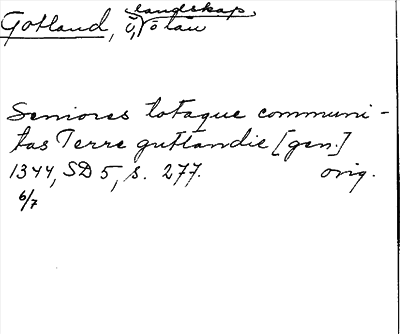 landskap
Gotland, ö, o län
Seniores totaque communi-
tas Terre gutlandie [gen.]
1344, SD 5, s. 277. orig.
6/7